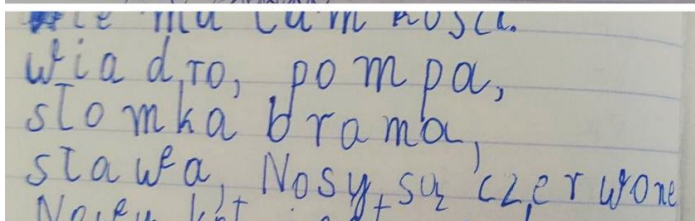 ma tam kości.
wiadro, pompa,
słomka brama,
sława, Nosy, są czerwone